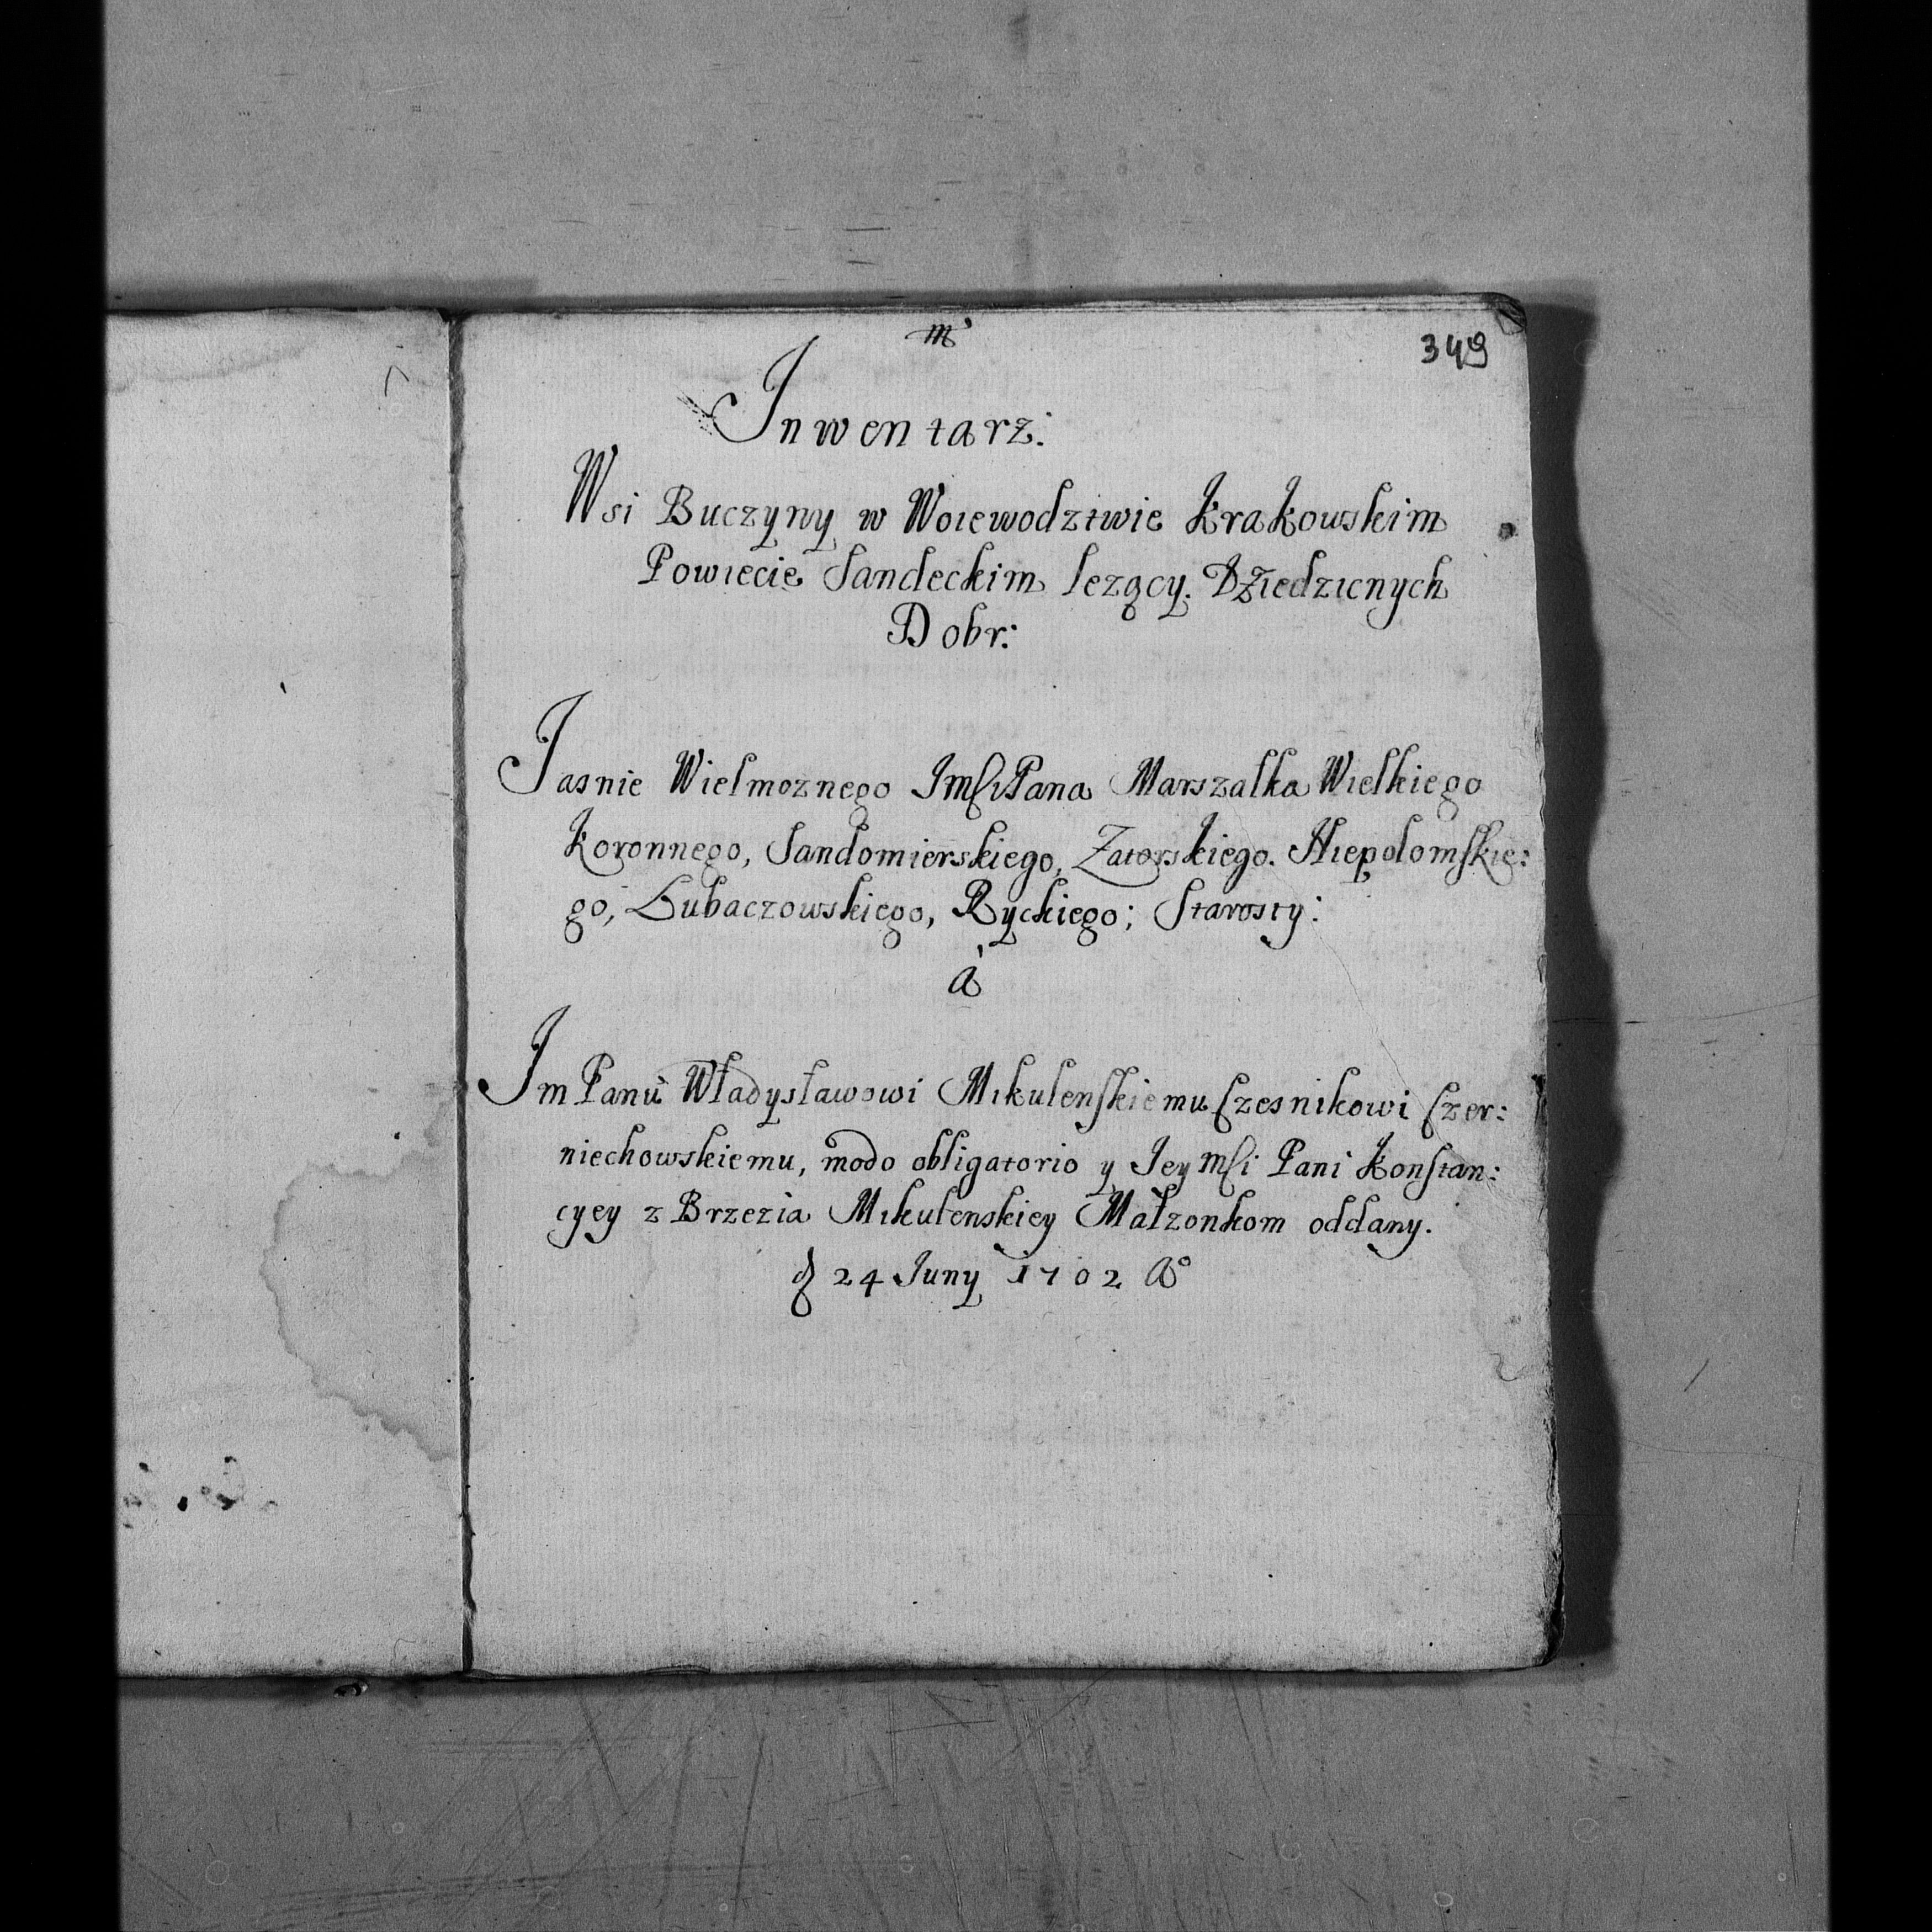 m
349
Inwentarz:
Wsi Buczyny w Woiewodztwie Krakowskim
Powiecie Sandeckim lezący. Dziedzicnych
Dobr:
Jasnie Wielmoznego Jmſi Pana Marszalka Wielkiego
Koronnego, Sandomierskiego, Zatorskiego. Niepolomſkie:
go, Lubaczowskiego, Ryckiego; Starosty:
à
Jm Panu Władysławowi Mikulenſkiemu Czesnikowi Czer:
niechowskiemu, modo obligatorio y Jey mſi Pani Konſtan:
cyey z Brzezia Mikulenskiey Małzonkom oddany.
24 Juny 1702 Aº